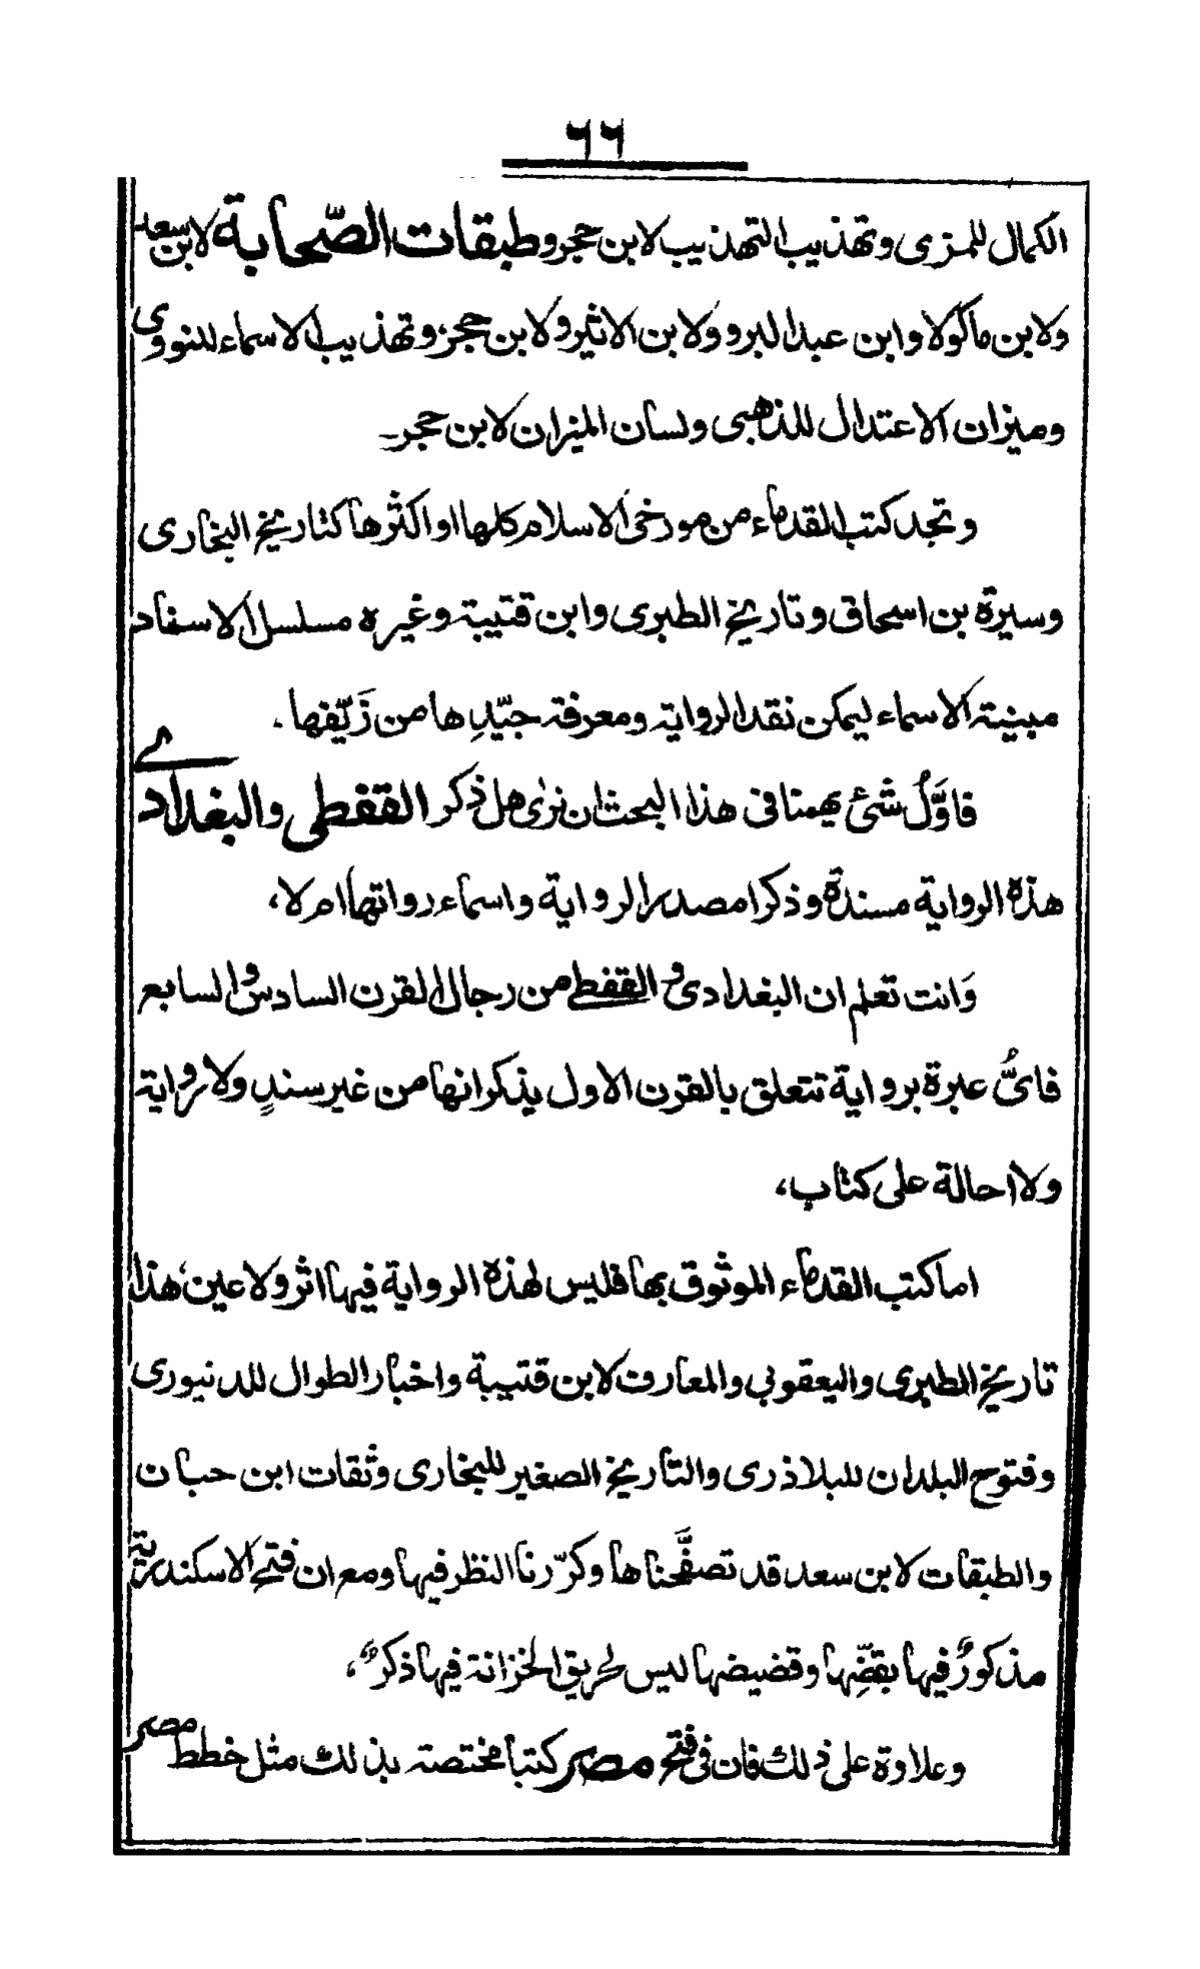 ٦٦
الكمال للمزى وتهذيب التهذيب لابن حجر وطبقات الصّحابة لابن سعد
ولابن ماكولا وابن عبد البر وولابن الاثير ولابن حجز، وتهذيب الاسماء للنووى
وميزان الاعتدال للذهبى ولسان الميزان لابن حجر۔
وتجد كتب القدماء من مورخى الاسلام كلها او اكثرها كتاريخ البخارى
وسيرة بن اسحاق وتاريخ الطبرى وابن قتيبة وغيره مسلسل الاسفاد
مبينة الاسماء ليمكن نقد الرواية ومعرفة جيّدِها من زَيّفها۔
فاوَّلُ شئ يهمنا فى هذا البحث ان نرٰى هل ذكر القفطى والبغدادے
هذه الرواية مسندة وذكرا مصدر الرواية واسماء رواتها ام لا،
وَانت تعلم ان البغدادى والقفطے من رجال القرن السادس والسابع
فاىُّ عبرة برواية تتعلق بالقرن الاول يذكرانها من غير سندٍ ولا رواية
ولا احالة على كتابٍ،
اما كتب القدماء الموثوق بها فليس لهذه الرواية فيها اثر ولا عين، هذا
تاريخ الطبرى واليعقوبى والمعارف لابن قتيبة واخبار الطوال للدنيورى
وفتوح البلدان للبلاذرى والتاريخ الصغير للبخارى وثقات ابن حبان
والطبقات لابن سعد قد تصفَّحناها وكرّرنا النظر فيها ومع ان فتح الاسكندرية
مذكورٌ فيها بقضِّها وقضيضها ليس لحريق الخزانة فيها ذكرٌ،
وعلاوة على ذلك فان فى فتح مصر كتبا مختصة بذلك مثل خطط مصر